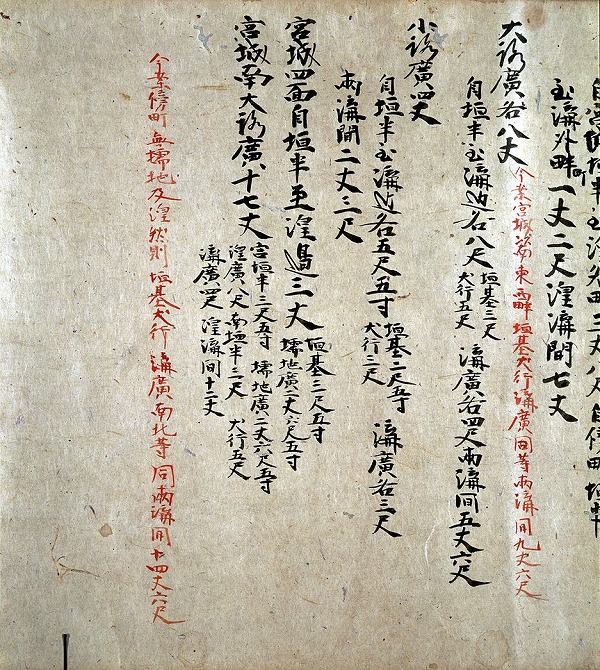 垣半至溝外畔三丈八尺自傍町垣半
至溝外畔一丈二尺湟溝間七丈
大路廣各八丈
今案宮城東西垣基犬行溝廣同等兩溝間九丈六尺
自垣半至溝邊各八尺
垣基三尺
犬行五尺
溝廣各四尺兩溝間五丈六尺
小路廣四丈
自垣半至溝邊各五尺五寸
垣基二尺五寸
犬行三尺
溝廣各三尺
兩溝間二丈三尺
宮城四面自垣半至湟邊三丈
垣基三尺五寸
壖地廣二丈六尺五寸
宮城南大路廣十七丈
宮垣半三尺五寸 壖地廣二丈六尺五寸
湟廣八尺 南垣半三尺 犬行五尺
溝廣四尺 湟溝間十二丈
今案傍町無壖地及湟然則垣基犬行溝廣南北等同兩溝間十四丈六尺